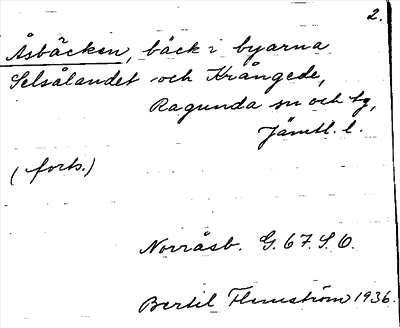 2.
Åsbäcken, bäck i byarna
Selsålandet och Krångede,
Ragunda sn och tg,
Jämtl. l.
(forts.)
Norråsb. G. 67. S. O.
Bertil Flemström 1936.